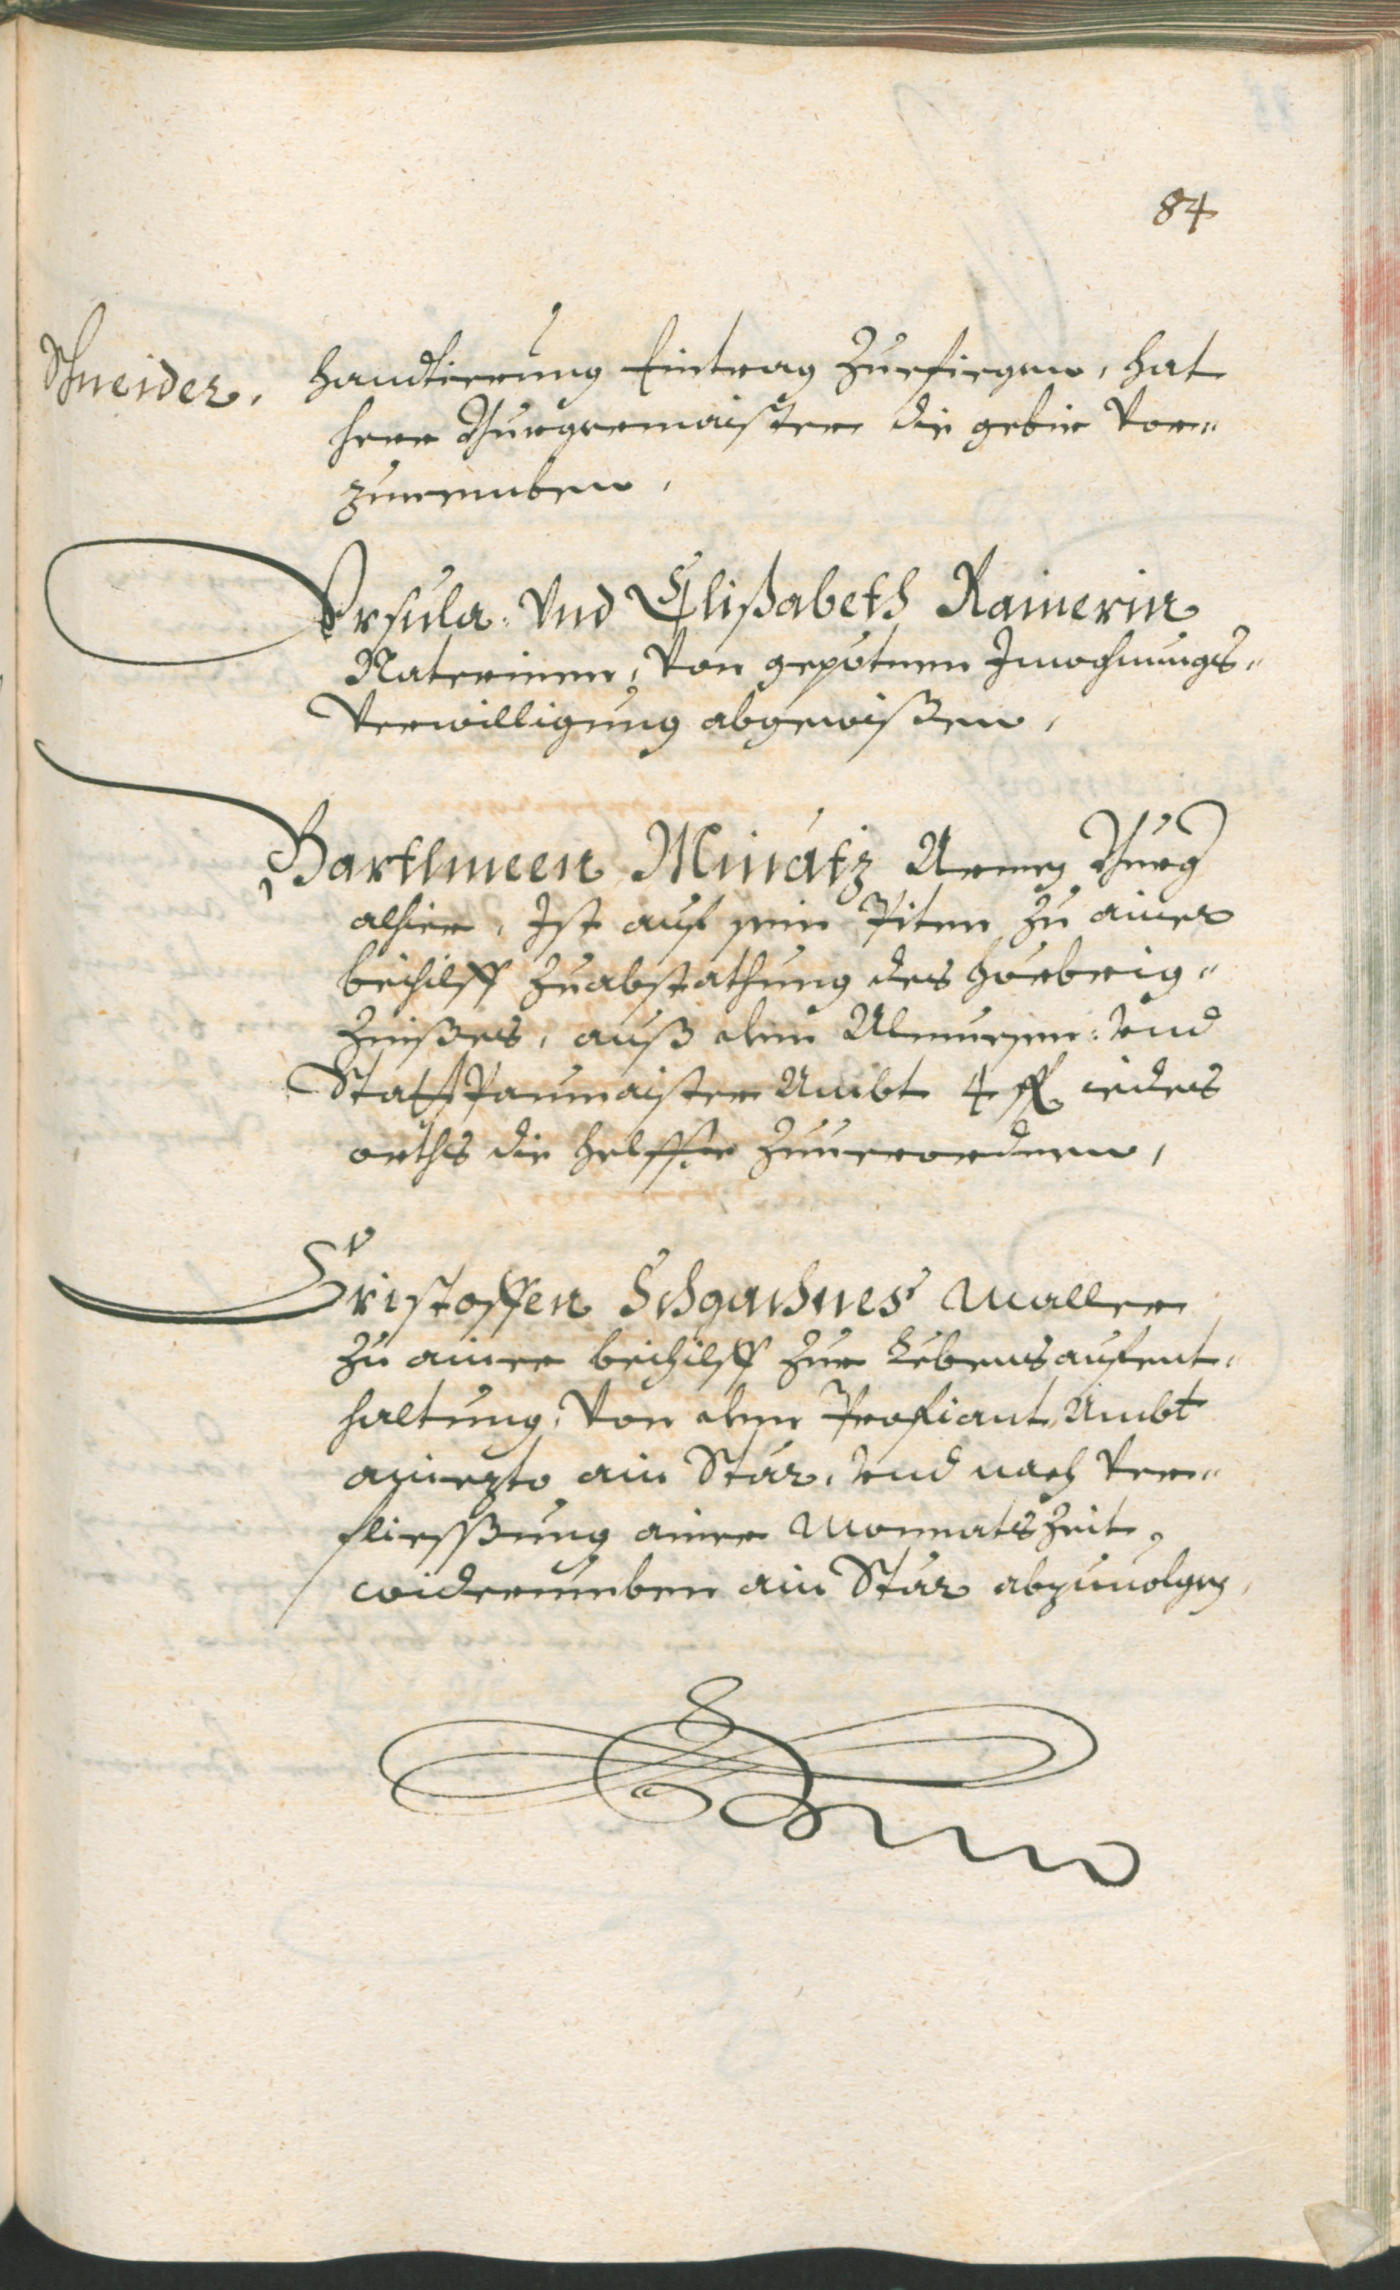 84
Schneider.
handtierung Eintrag Zuefiegen, hat
herr Burgermaister die gebir vor-
zunemben.
Vrsula. Vnd Elißabeth Rainerin
Naterinen, Von gepetnen Inwohnungs-
Verwilligung abgewißen,
Bartlmeen Minätz Armen Burg
alhier, Ist auf sein Piten zu ainer
beihilff zu abstathung des herberig-
Zinßes, auß dem Almuesen: vnd
StattPaumaister Ambt 4 fl. iedes
orths die helffte zuuerordnen,
Cristoffen Maller
zu ainer beihilff zur Lebensaufent-
haltung, Von dem Profiant Ambt
aniezto ain Stär, vnd nach ver-
fliessung ainer Monnats Zeit,
widerumben ain Stär abzuuolgen,